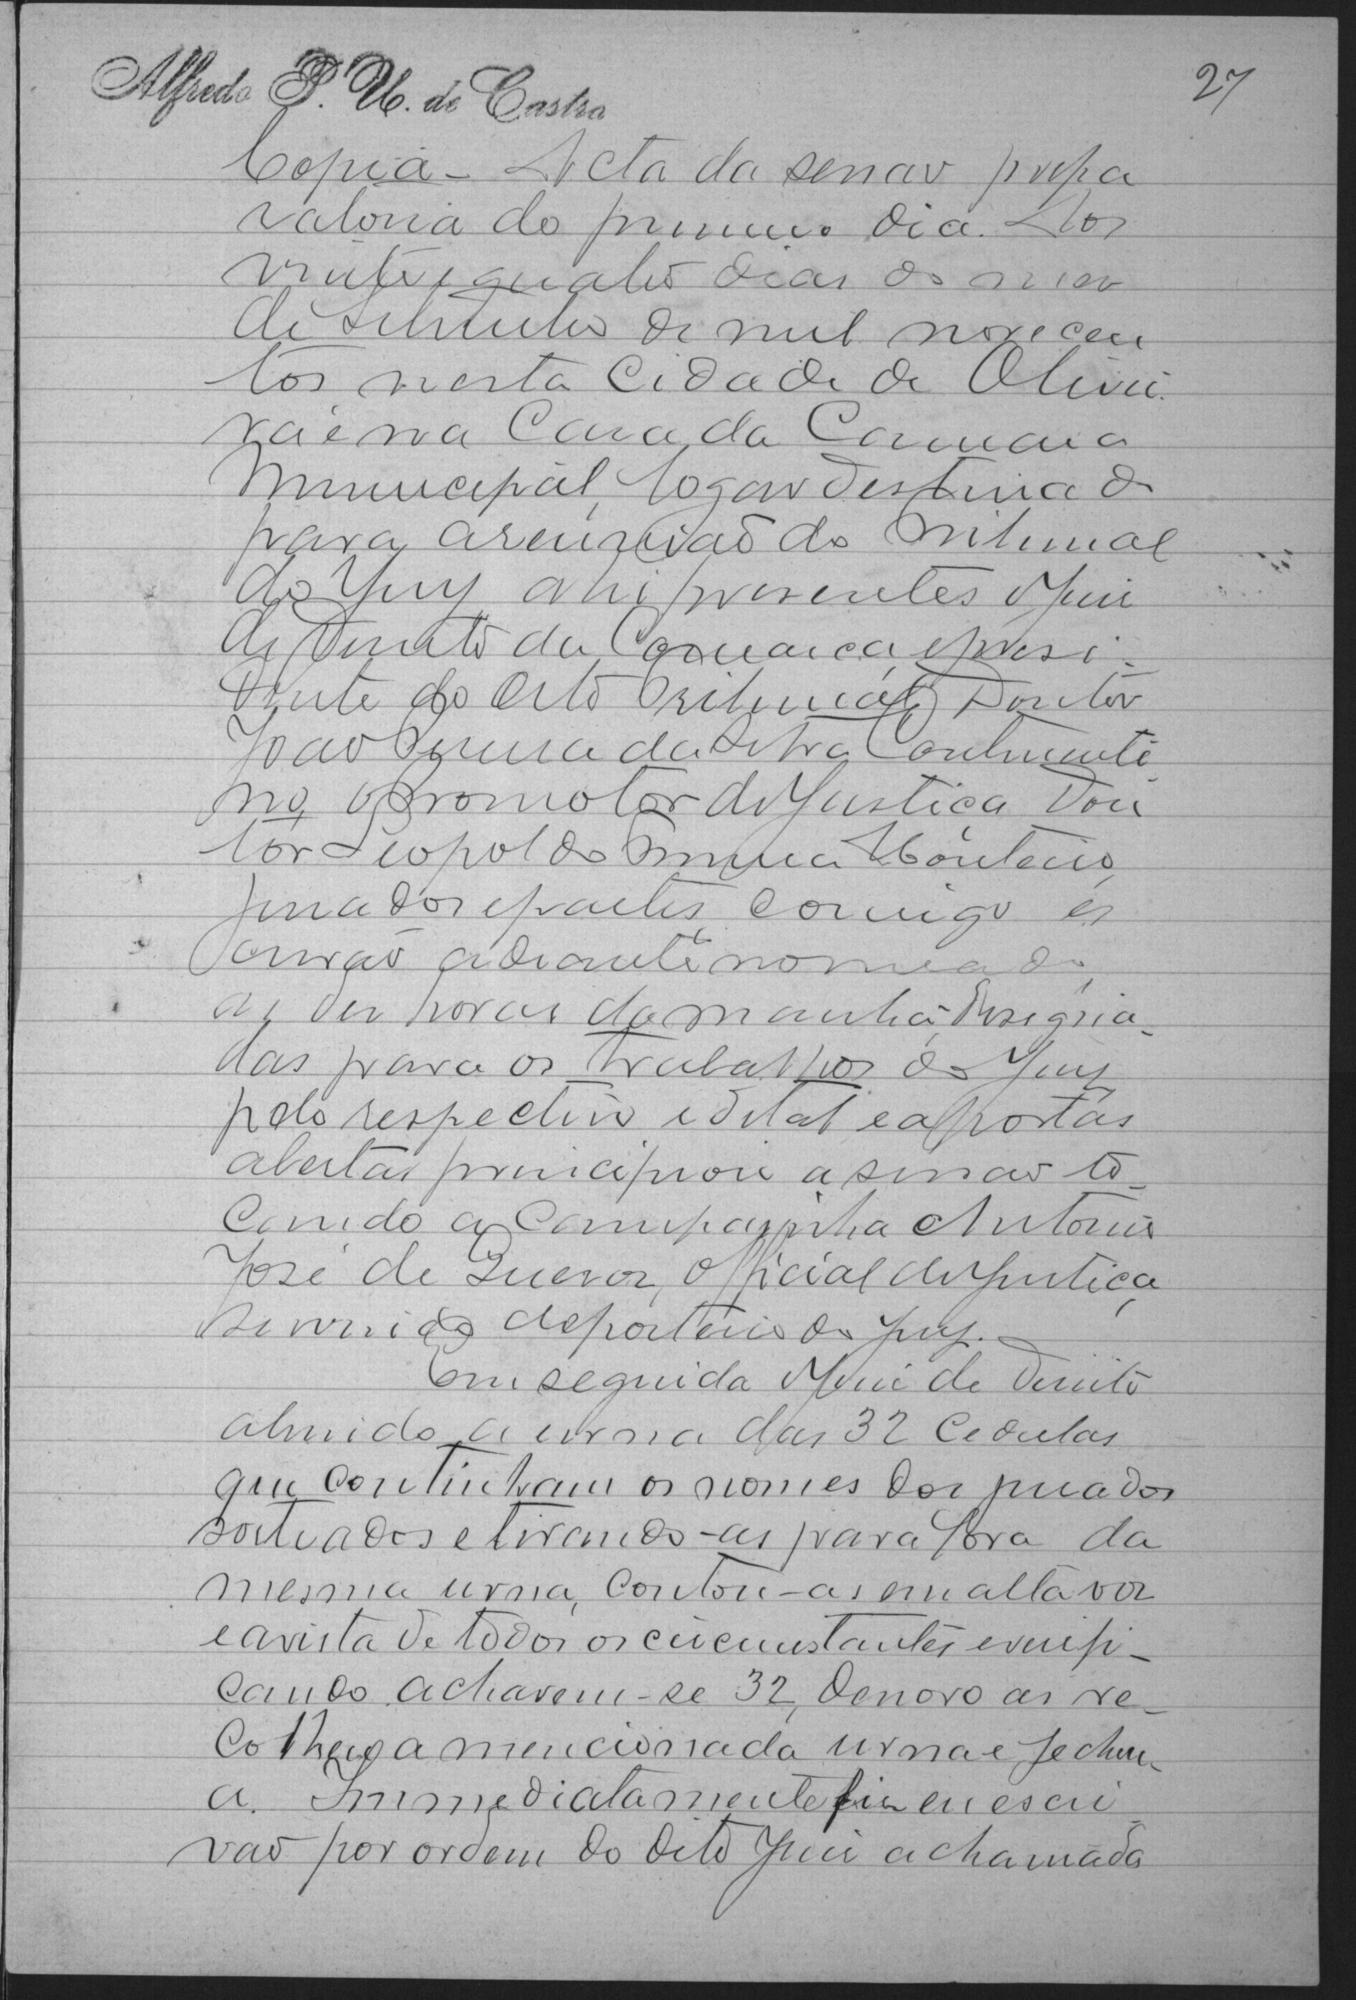 Alfredo P. U. de Castro
27
Copia - Acta da sessão prepa
ratoria do primeiro dia. Aos
vinte e quatro dias do mez
de Setembro de mil novecen
tos nesta Cidade de Olivei-
ra e na Casa da Camara
Municipal, logar destinado
para a reunião do Tribunal
do Jury, ahi presentes o Juiz
de Direito da Comarca, e presi-
dente do dito Tribunal, Doutor
João da Silva
no, o Promotor de Justiça Dou
tor Leopoldo Monteiro,
jurados e partes, comigo es
crivão adiante nomeado,
as dez horas da manhã, designa-
das para os trabalhos do Jury
pelo respectivo edital e a portas
abertas, principiou a sessão to-
cando a campainha Antonio
José de Queroz, official de Justiça
servindo de porteiro do jury.
Em seguida o Juiz de Direito
abrindo a urna das 32 cedulas
que continham os nomes dos jurados
sorteados e tirando-as para fora da
mesma urna, contou-as em alta voz
e a vista de todos os circumstantes e verifi-
cando acharem-se 32, de novo as re-
colheu a mencionada urna e fechou-
a. Immediatamente fiz eu escri
vão por ordem do dito Juiz a chamada